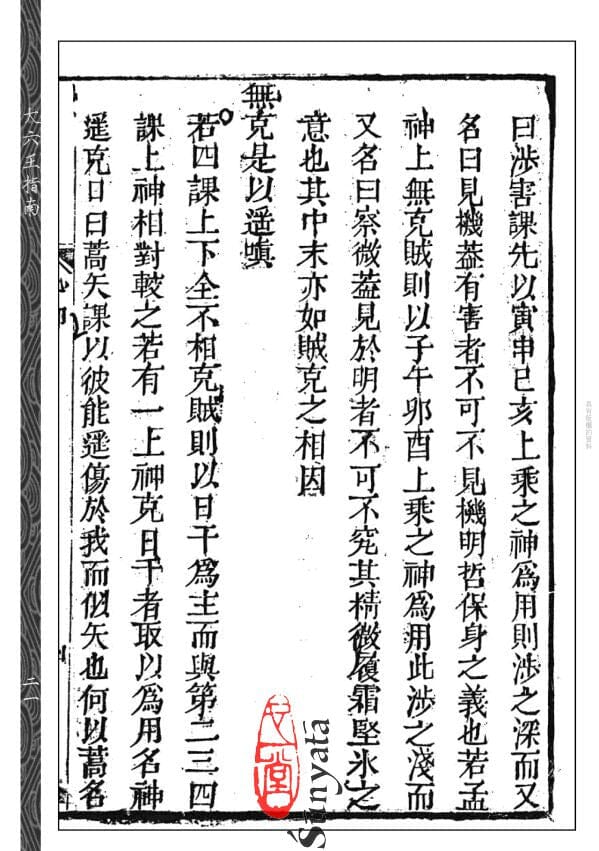 曰涉害課先以寅申巳亥上乘之神爲用則涉之深而又
名曰見機葢有害者不可不見機明哲保身之義也若孟
神上無克賊則以子午卯酉上乘之神爲用此涉之淺而
又名曰察微葢見於明者不可不究其精微履霜堅氷之
意也其中末亦如賊克之相因
無克是以遥嗔
若四課上下全不相克賊則以日干爲主而與第二三四
課上神相對較之若有一上神克日干者取以爲用名神
遥克日曰蒿矢課以彼能遥傷於我而似矢也何以蒿名
大六壬指南
二一
具有版權的資料
Śūnyatā